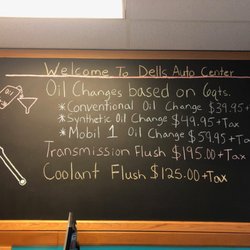 Welcome To Dells Auto Center
Oil Changes based on 6qts.
*Conventional Oil Change $39.95+
*Synthetic Oil Change $49.95+Tax
*Mobil 1 Oil Change $59.95+Tax
Transmission Flush $195.00+Tax
Coolant Flush $125.00+Tax